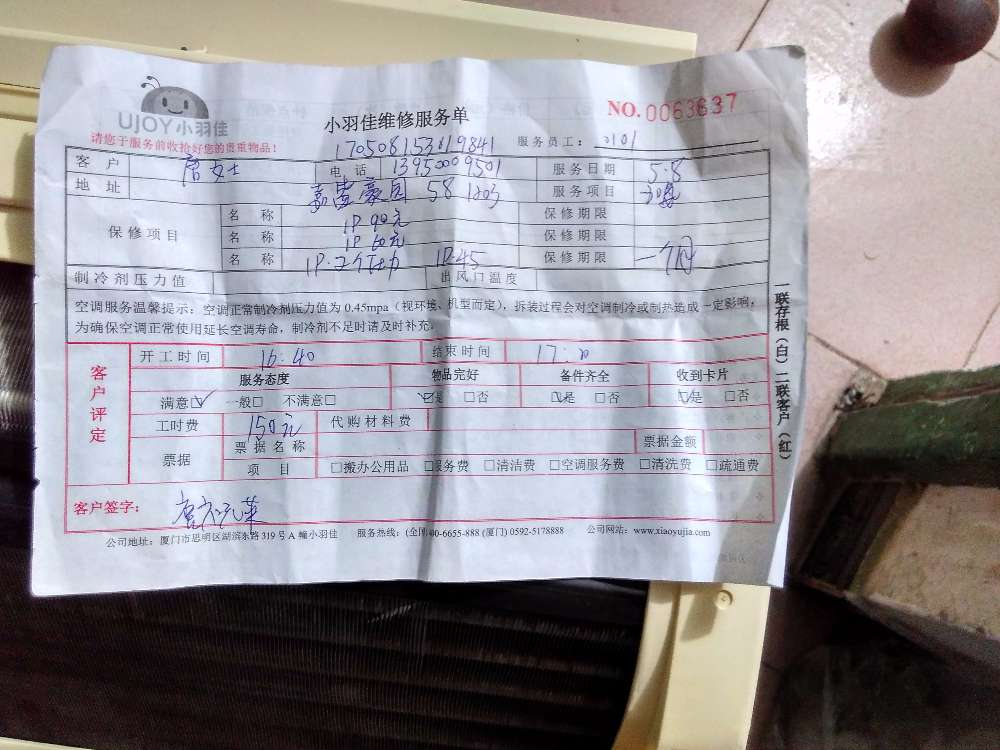 UJOY小羽佳
小羽佳维修服务单
NO.0063637
请您于服务前收拾好您的贵重物品!
17050815319841
服务员工:
客户 唐女士 电话 13950009501 服务日期 5.8
地址 58 服务项目
保修项目
名称 1P 90元 保修期限
名称 1P 60元 保修期限
名称 保修期限 一个月
制冷剂压力值 出风口温度
空调服务温馨提示:空调正常制冷剂压力值为 0.45mpa(视环境、机型而定),拆装过程会对空调制冷或制热造成一定影响,
为确保空调正常使用延长空调寿命,制冷剂不足时请及时补充。
客户评定
开工时间 16:40 结束时间
服务态度 物品完好 备件齐全 收到卡片
满意☑ 一般□ 不满意□ ☑是 □否 ☑是 □否 ☑是 □否
工时费 150元 代购材料费
票据 票据名称 票据金额
项目 □搬办公用品 □服务费 □清洁费 □空调服务费 □清洗费 □疏通费
客户签字:
公司地址:厦门市思明区湖滨东路 319 号 A 幢小羽佳 服务热线:(全国 00-6655-888 (厦门) 0592-5178888 公司网站:www.xiaoyujia.com
一联存根(白)二联客户(红)